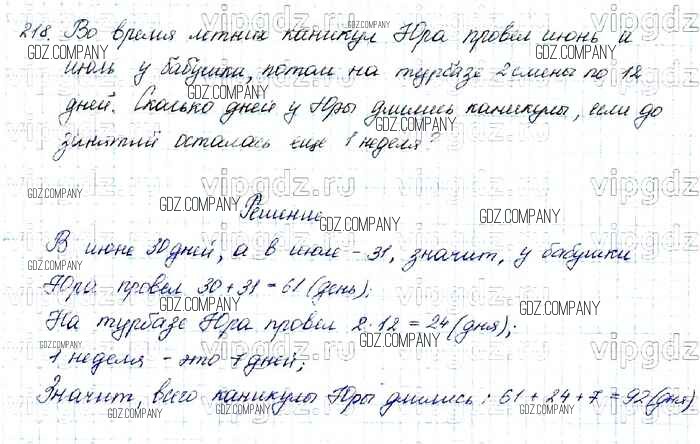 218. Во время летних каникул Юра провел июнь и
июль у бабушки, потом на турбазе 2 смены по 12
дней. Сколько дней у Юры длились каникулы, если до
занятий осталась еще 1 неделя?
Решение
В июне 30 дней, а в июле - 31, значит, у бабушки
Юра провел 30 + 31 = 61 (день);
На турбазе Юра провел 2·12 = 24 (дня);
1 неделя - это 7 дней;
Значит, всего каникулы Юры длились: 61 + 24 + 7 = 92 (дня)
GDZ.COMPANY
vipgdz.ru